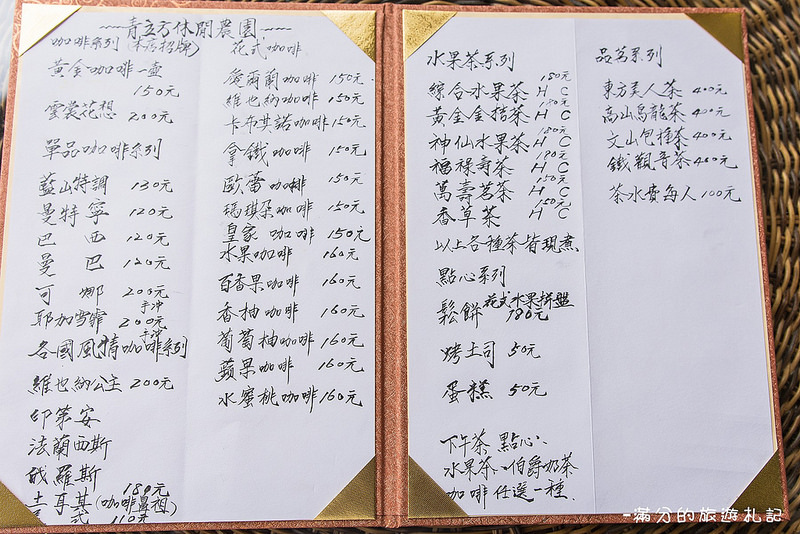 青立方休閒農園
咖啡系列 (本店招牌)
黃金咖啡一壺
150元
雲裳花想 200元
單品咖啡系列
藍山特調 130元
曼特寧 120元
巴西 120元
曼巴 120元
可娜 200元
手沖
耶加雪菲 200元
手沖
各國風情咖啡系列
維也納公主 200元
印第安
法蘭西斯
俄羅斯
180元
土耳其(咖啡鼻祖)
式 110元
花式咖啡
愛爾蘭咖啡 150元
維也納咖啡 150元
卡布其諾咖啡 150元
拿鐵咖啡 150元
歐蕾咖啡 150元
瑪琪朵咖啡 150元
皇家咖啡 150元
水果咖啡 160元
百香果咖啡 160元
香柚咖啡 160元
葡萄柚咖啡 160元
蘋果咖啡 160元
水蜜桃咖啡 160元
水果茶系列
180元
綜合水果茶 H C
150元
黃金金桔茶 H C
180元
神仙水果茶 H C
180元
福祿壽茶 H C
150元
萬壽茗茶 H C
150元
香草茶 H C
以上各種茶皆現煮
點心系列
鬆餅 花式水果拼盤
180元
烤土司 50元
蛋糕 50元
下午茶點心、
水果茶、伯爵奶茶
咖啡任選一種.
品茗系列
東方美人茶 400元
高山烏龍茶 400元
文山包種茶 400元
鐵觀音茶 400元
茶水費每人 100元
-滿分的旅遊札記